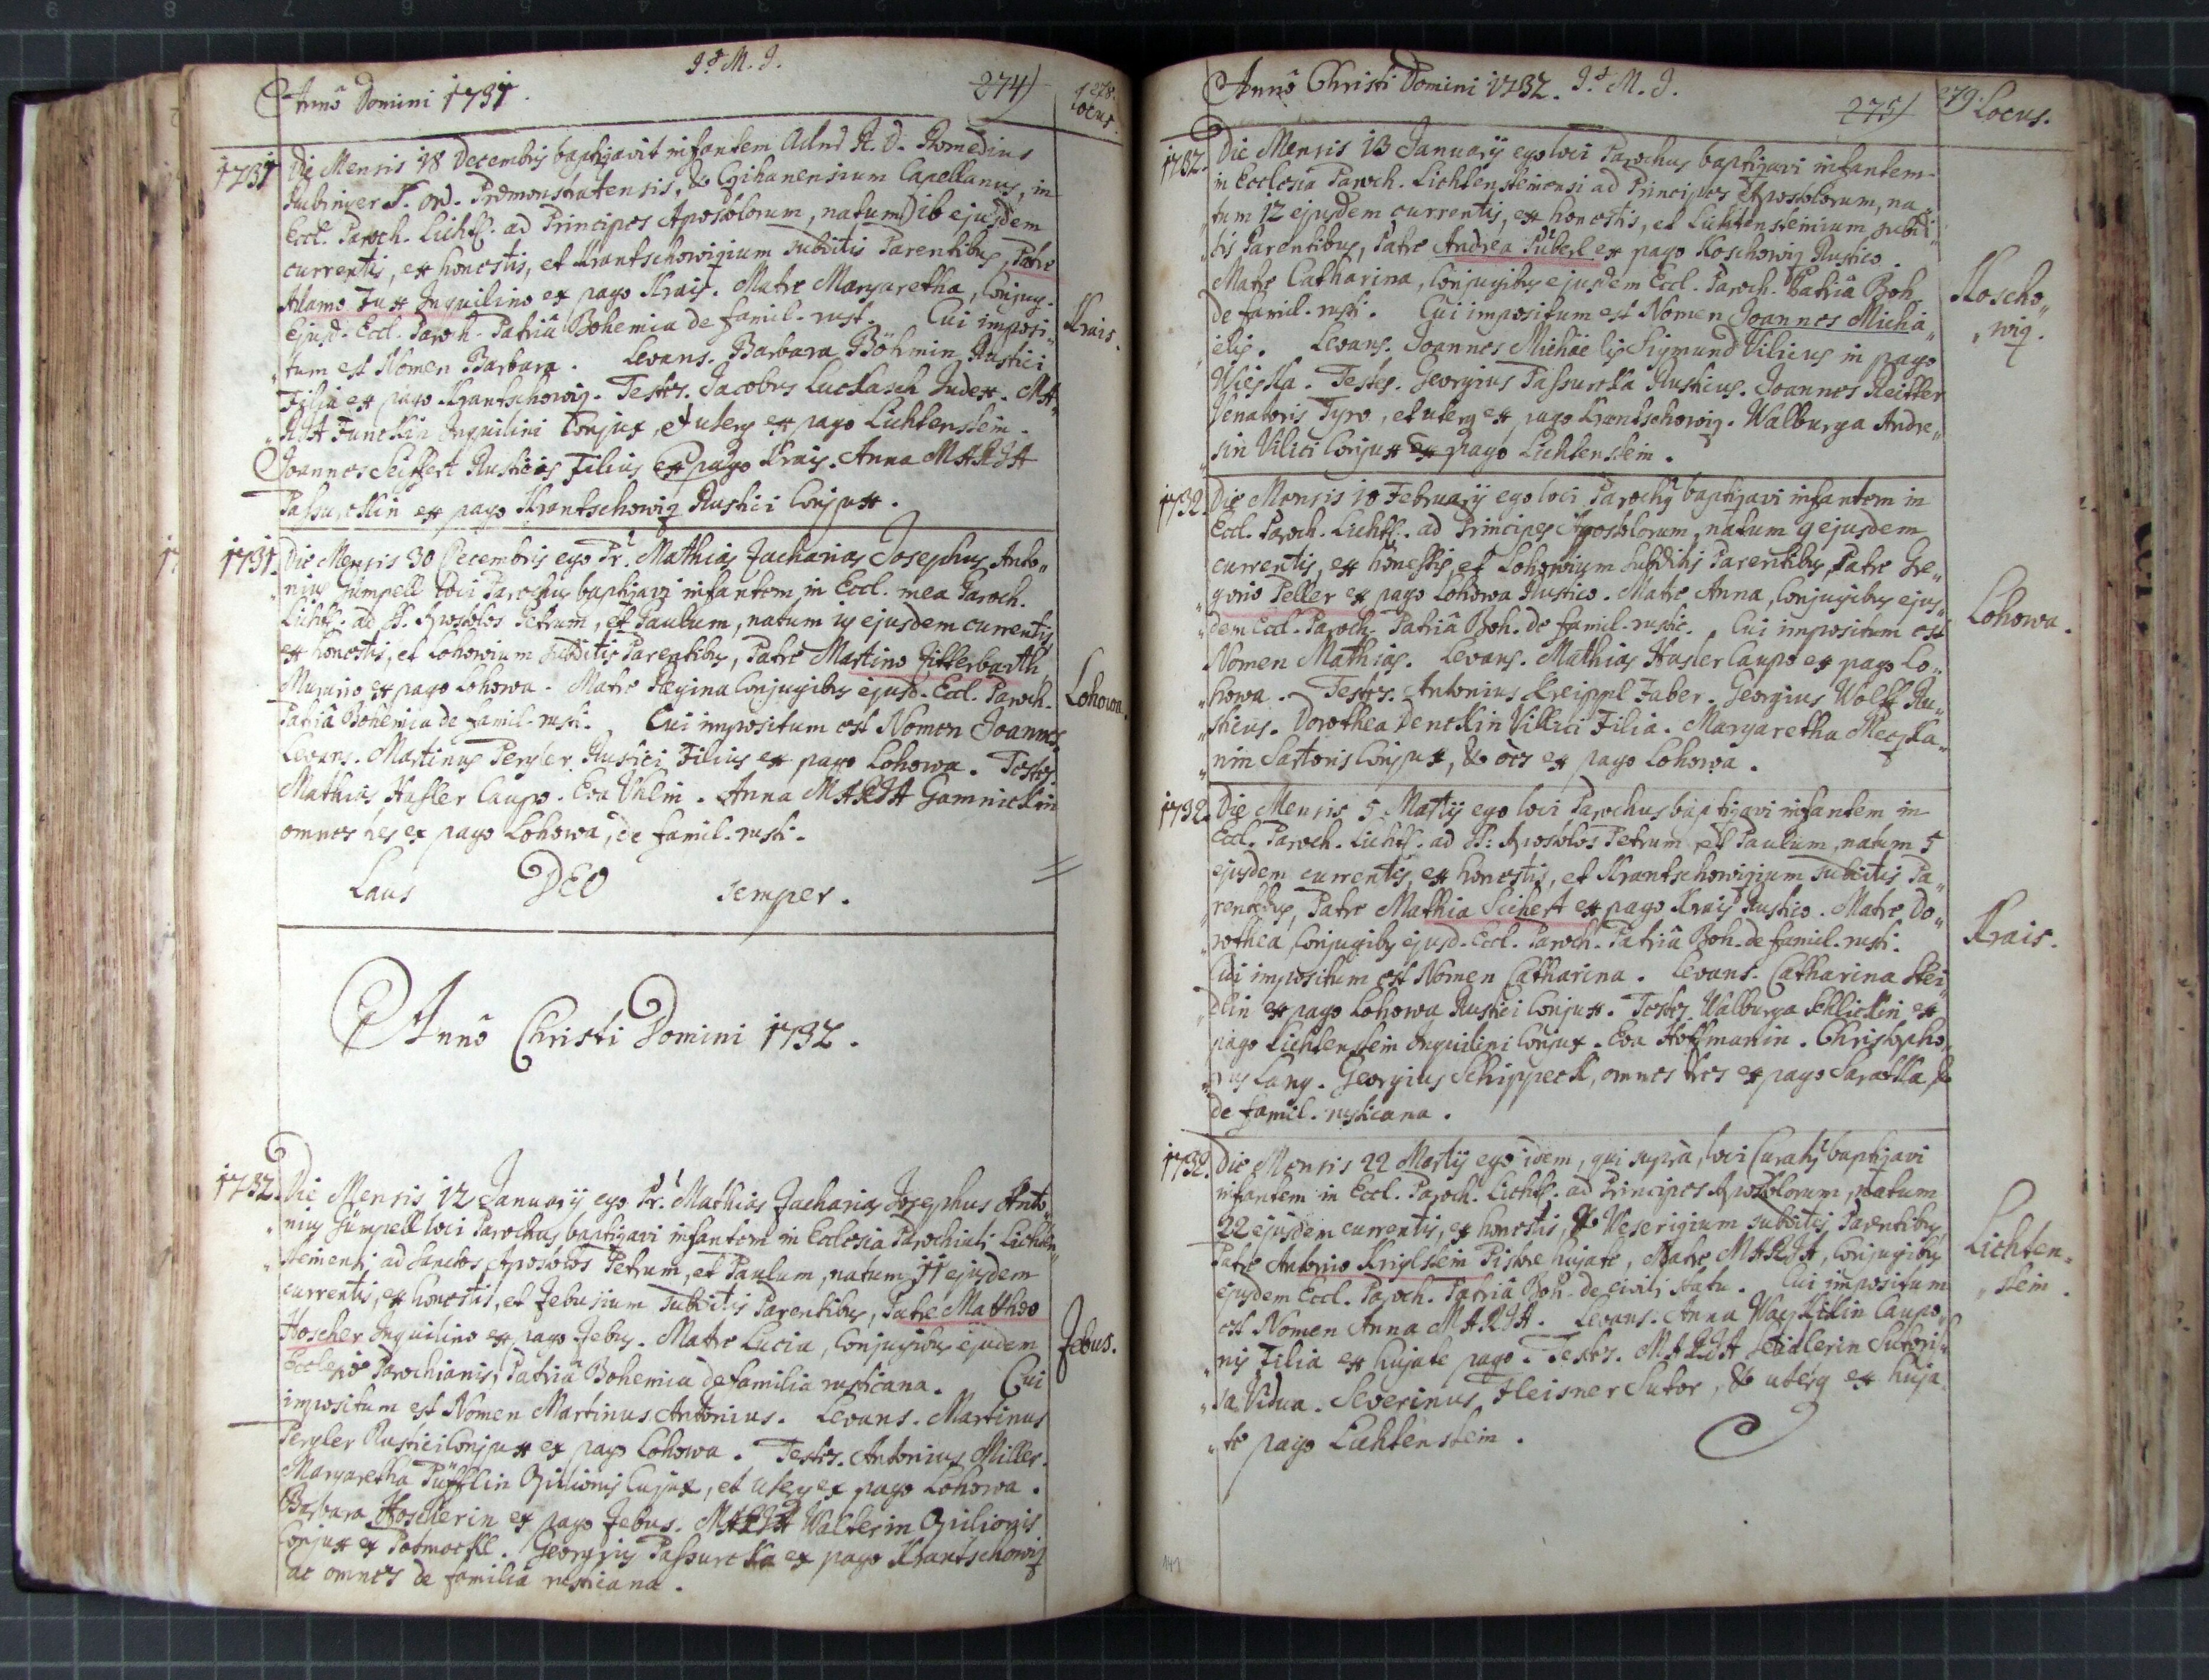 J. M. J.
Annô Domini 1731.
274)
278.
Locus.
1731
Die Mensis 18 Decembris baptizavit infantem Adnd. R. D. Romedius
Hubinger S. Ord. Præmonstratensis, & Czihanensium Capellanus, in
Eccl. Paroch. Lichts. ad Principes Apostolorum, natum 16 ejusdem
currentis, ex honestis, et Krantschowizium subditis Parentibus, Patre
Adamo Fux Inquilino ex pago Krais. Matre Margaretha, Conjug.
ejusd. Eccl. Paroch. Patriâ Bohemica de famil. rust. Cui imposi„
„tum est Nomen Barbara. Levans. Barbara Böhmin Rustici
Filia ex pago Krantschowiz. Testes. Jacobus Luckasch Judex. MA„
„RIA Funckin Inquilini Conjux, et uterq ex pago Lichtenstein.
Joannes Seiffert Rusticus Filius ex pago Krais. Anna MARIA
Passurckin ex pago Krantschowiz Rustici Conjux.
Krais.
1731.
Die Mensis 30 Decembris ego Pr. Mathias Zacharias Josephus Anto„
„nius Gümpell loci Parochus baptizavi infantem in Eccl. mea Paroch.
Lichts. ad SS. Apostolos Petrum, et Paulum, natum 19 ejusdem currentis
ex honestis, et Lohowium subditis Parentibus, Patre Martino Zitterbarth
Murario ex pago Lohowa. Matre Regina Conjugibus ejusd. Eccl. Paroch.
Patriâ Bohemica de famil. rusti. Cui impositum est Nomen Joannes
Levans. Martinus Pergler Rustici Filius ex pago Lohowa. Testes.
Mathias Hasler Caupo. Eva Ulmin. Anna MARIA Gamnickin
omnes hes ex pago Lohowa, de famil. rusti.
Lohowa.
Laus DEO semper.
Annô Christi Domini 1732.
1732.
Die Mensis 12 January ego Pr. Mathias Zacharias Josephus Anto„
„nius Gümpell loci Parochus baptizavi infantem in Ecclesia Parochiali Lichten„
„steinensi ad Sanctos Apostolos Petrum, et Paulum, natum 11 ejusdem
currentis, ex honestis, et Zebusium subditis Parentibus, Patre Matthæo
Hoscher Inquilino ex pago Zebus. Matre Lucia, Conjugibus ejusdem
Ecclesiæ Parochianis, Patriâ Bohemica de familia rusticana. Cui
impositum est Nomen Martinus Antonius. Levans. Martinus
Pergler Rustici Conjux ex pago Lohowa. Testes. Antonius Miller.
Margaretha Püfflin Opilionis Cujux, et uterq ex pago Lohowa.
Barbara Hoscherin ex pago Zebus. MARIA Walterin Opilionis
Conjux ex Potmockl. Georgius Passurcka ex pago Krantschowiz
ac omnes de familia rusticana.
Zebus.
Annô Christi Domini 1732. J. M. J.
275)
279.
Locus.
1732.
Die Mensis 13 January ego loci Parochus baptizavi infantem
in Ecclesia Paroch. Lichtensteinensi ad Principes Apostolorum, na„
„tum 12 ejusdem currentis, ex honestis, et Lichtensteinium subdi„
„tis Parentibus, Patre Andrea Püberl ex pago Koschowiz Rustico.
Matre Catharina, Conjugibus ejusdem Eccl. Paroch. Patriâ Boh.
de famil. rusti. Cui impositum est Nomen Joannes Micha„
„elis. Levans. Joannes Michaelis Sigmund Vilicus in pago
Wieska. Testes. Georgius Passurcka Rusticus. Joannes Reitter
Venatoris Tyro, et uterq ex pago Krantschowiz. Walburga Andre„
„sin Vilici Conjux ex pago Lichtenstein.
Koscho„
„wiz.
1732.
Die Mensis 10 February ego loci Parochus baptizavi infantem in
Eccl. Paroch. Lichts. ad Principes Apostolorum, natum 9 ejusdem
currentis, ex honestis, et Lohowium subditis Parentibus, Patre Gre„
„gorio Peller ex pago Lohowa Rustico. Matre Anna, Conjugibus ejus„
„dem Eccl. Paroch. Patriâ Boh. de famil. rustic. Cui impositum est
Nomen Mathias. Levans. Mathias Hasler Caupo ex pago Lo„
„howa. Testes. Antonius Kreippl Faber. Georgius Wolff Ru„
„sticus. Dorothea Denckin Villici Filia. Margaretha Meezka„
„nin Sartoris Conjux, & oes ex pago Lohowa.
Lohowa.
1732.
Die Mensis 5 Martij ego loci Parochus baptizavi infantem in
Eccl. Paroch. Lichts. ad SS. Apostolos Petrum, et Paulum, natum 5
ejusdem currentis, ex honestis, et Krantschowizium subditis Pa„
„rentibus, Patre Mathia Seichert ex pago Krais Rustico. Matre Do„
„rothea Conjugibus ejusd. Eccl. Paroch. Patriâ Boh. de famil. rusti.
Cui impositum est Nomen Catharina. Levans. Catharina Stei„
„dlin ex pago Lohowa Rustici Conjux. Testes. Walburga Schlickin ex
pago Lichtenstein Inquilini Conjux. Eva Hoffmanin. Christopho„
„rus Lang. Georgius Schippeck, omnes tres ex pago Saratka, &
de famil. rusticana.
Krais.
1732.
Die Mensis 22 Martij ego idem, qui suprà, loci Curatus baptizavi
infantem in Eccl. Paroch. Lichts. ad Principes Apostolorum, natum
22 ejusdem currentis, ex honestis, & Weserizium subditis Parentibus
Patre Antonio Kriglstein Pistore hujate, Matre MARIA, Conjugibus
ejusdem Eccl. Paroch. Patriâ Boh. de civili statu. Cui impositum
est Nomen Anna MARIA. Levans. Anna Wayskitin Caupo„
„nis Filia ex hujate pago. Testes. MARIA Seidlerin Sutoris„
„sa Vidua. Severinus Fleisner Sutor, & uterq ex huja„
„te pago Lichtenstein.
Lichten„
„stein.
141